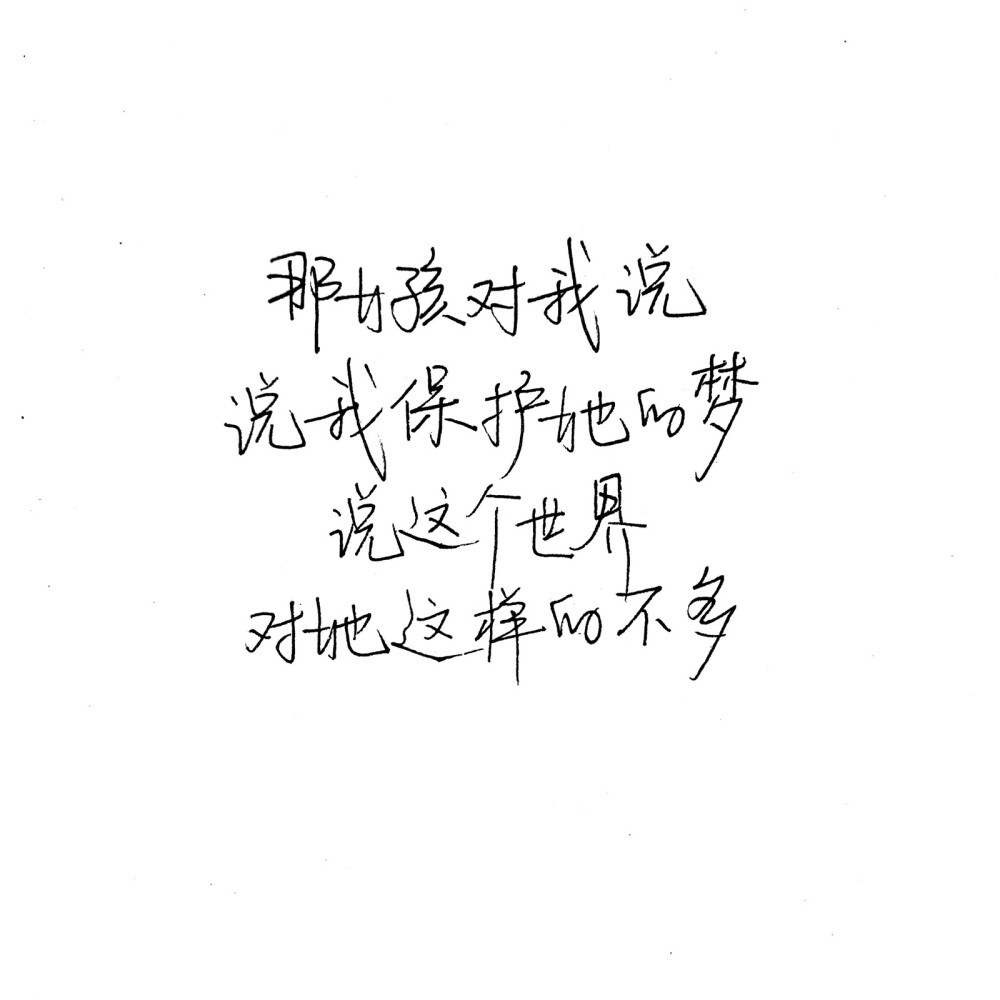 那女孩对我说
说我保护她的梦
说这个世界
对她这样的不多